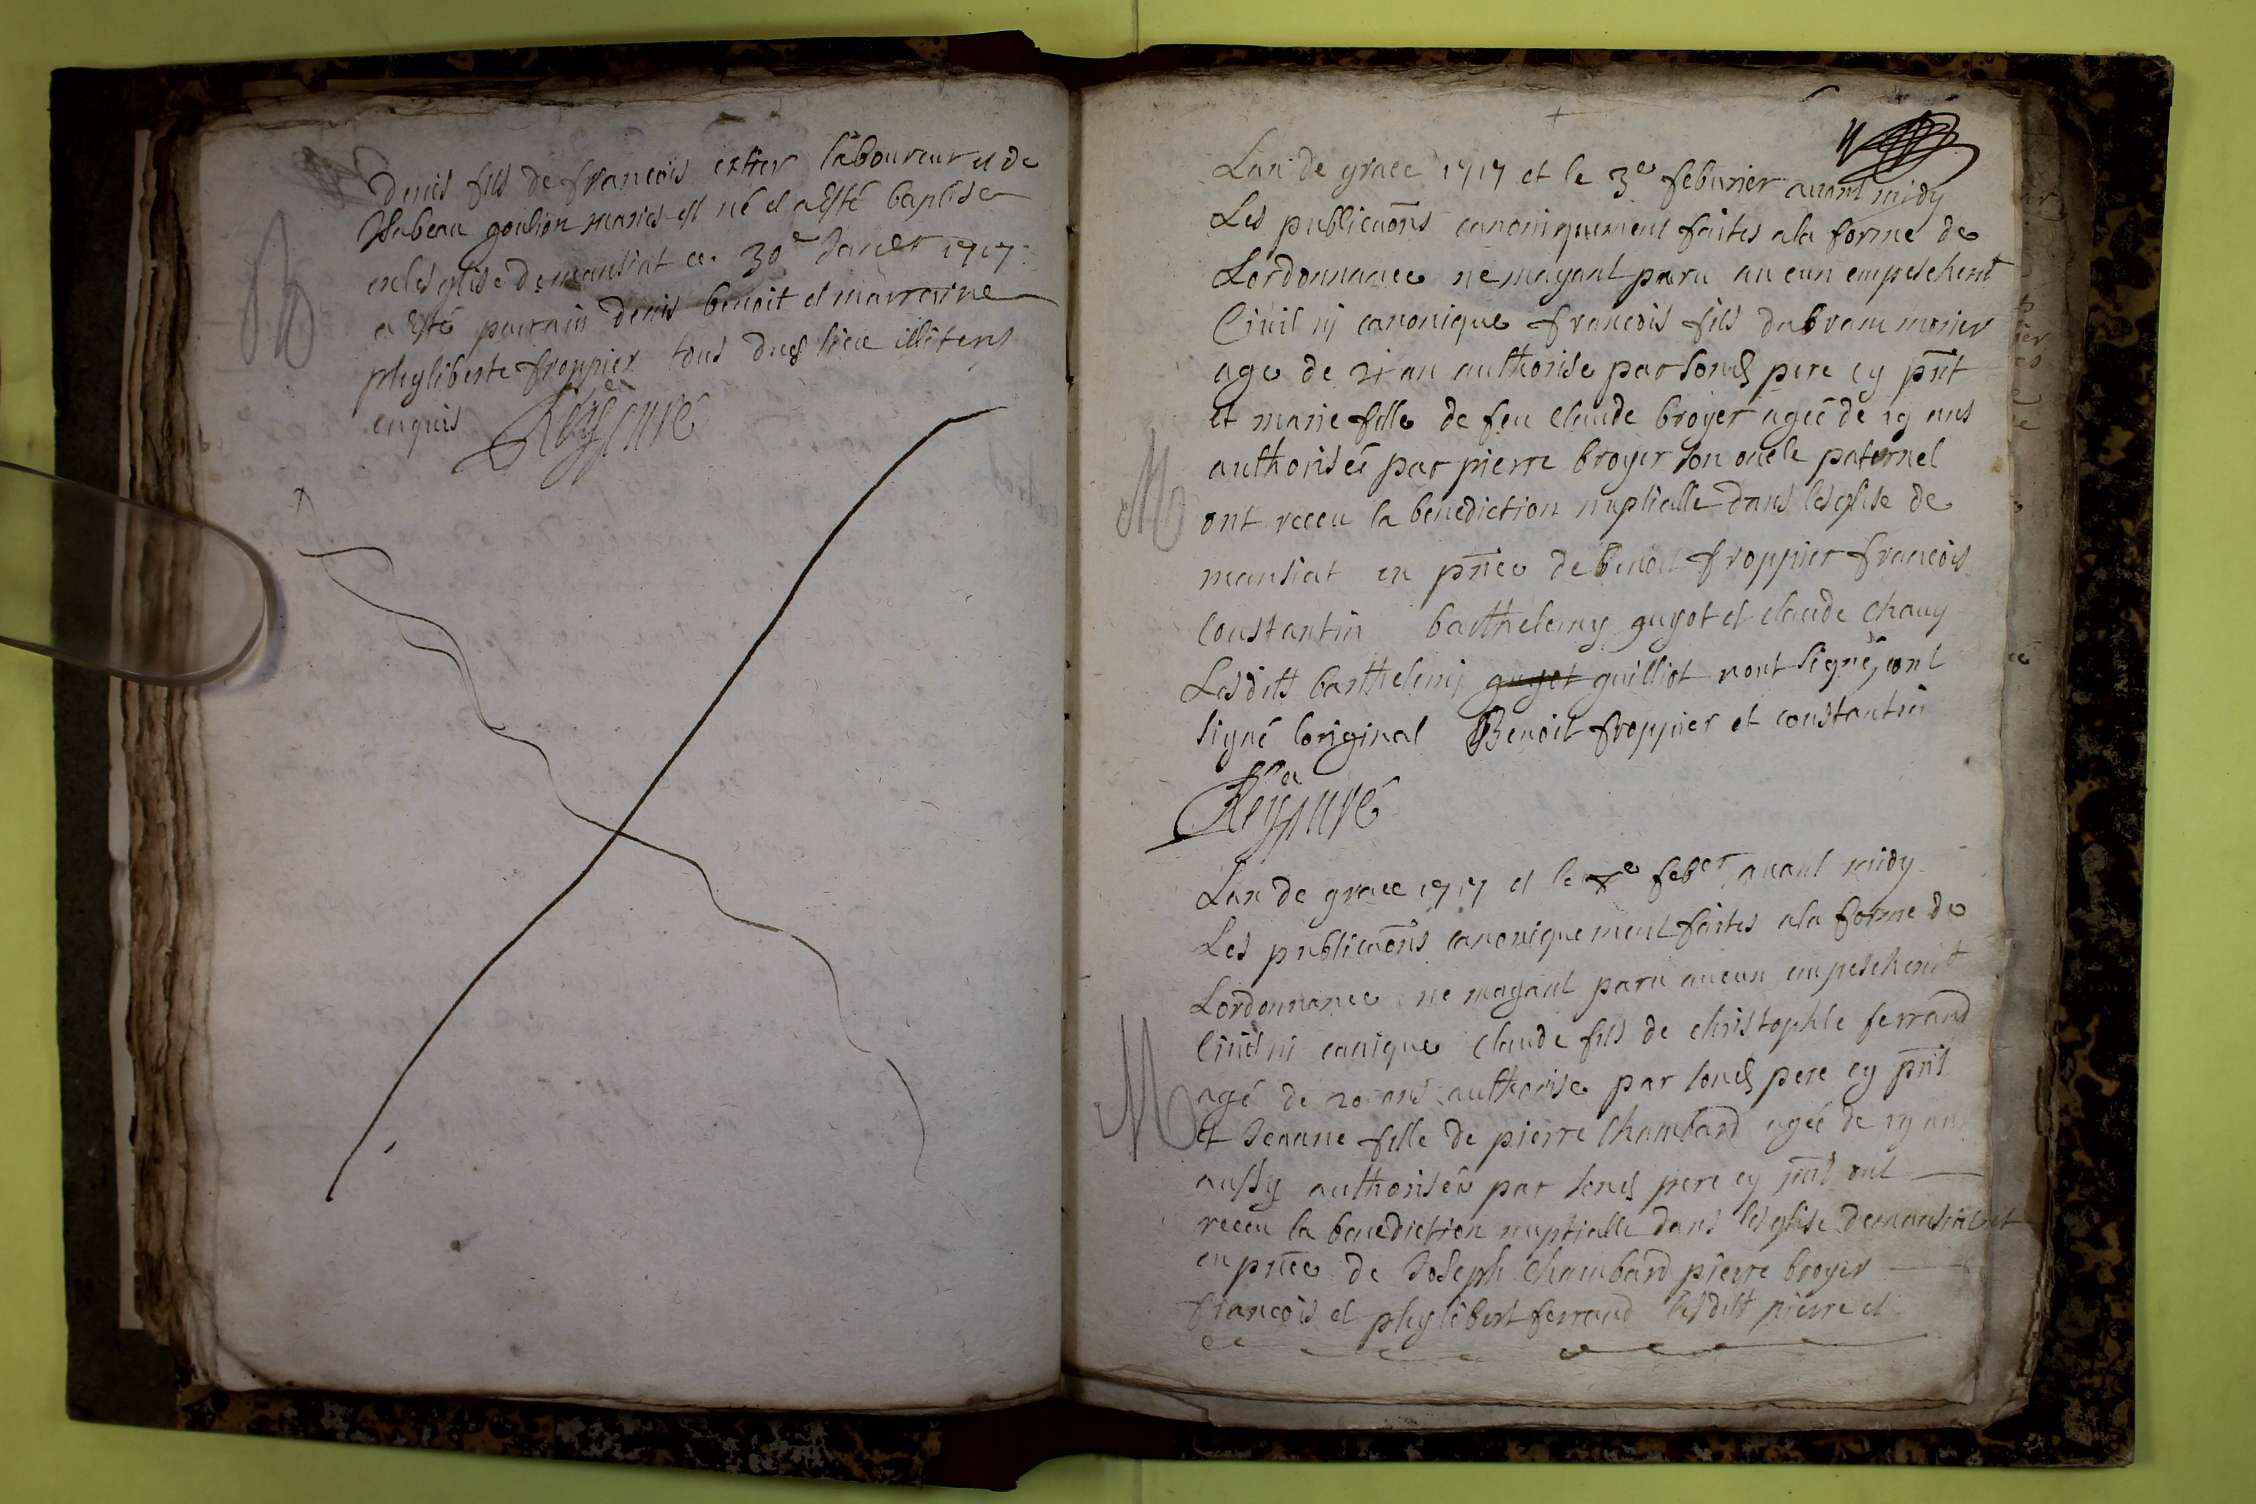 B
denis fils de francois estier laboureur et de
Isabeau goulion maries est né et a esté baptisé
en lesglise de mansiat ce 30e Janer 1717.
a esté parrain denis benoit et marraine
phyliberte froppier tous dud lieu illiterés
enquis Rey curé
Lan de grace 1717 et le 3e feburier avant midy
Les publicaons canoniquement faites a la forme de
Lordonnance ne mayant paru aucun empeschemt
Civil ni canonique francois fils dabram morier
age de 21 an authorise par soned pere cy pnt
et marie fille de feu claude broyer agée de 19 ans
M
authorisée par pierre broyer son oncle paternel
ont receu la benediction nuptialle dans lesglise de
mansiat en pnce de benoit froppier francois
constantin barthelemy guyot et claude chavy
Lesdits barthelemi guyot guilliot nont signé, ont
signé loriginal Benoit froppier et constantin
Rey curé
Lan de grace 1717 et le feber avant midy
Les publicaons canoniquement faites a la forme de
Lordonnance ne mayant paru aucun empeschemt
Civil ni canique claude fils de christophle ferrand
agé de 20 ans authorise par soned pere cy pnt
M
et Jeanne fille de pierre Chambard agée de 19 ans
aussy authorisée par soned pere cy pnt ont
receu la benediction nuptialle dans lesglise de mansiat et
en pnce de Joseph Chambard pierre broyer
francois et phylibert ferrand lesdits pierre et